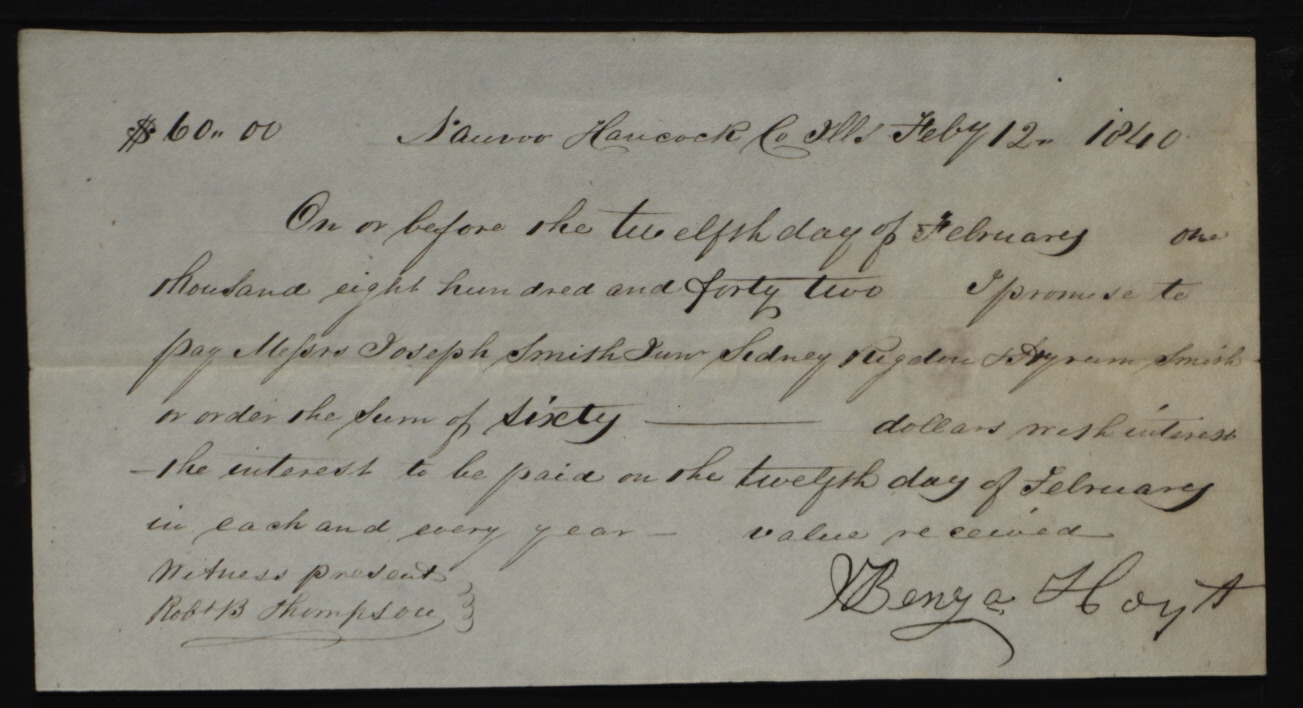 $60.. 00 Nauvoo Hancock Co Ills Feby 12.. 1840
On or before the twelfth day of February one
thousand eight hundred and forty two I promise to
pay Messrs Joseph Smith Junr Sidney Rigdon & Hyrum Smith
or order the Sum of Sixty ——— dollars with interest
—the interest to be paid on the twelfth day of February
in each and every year — value received
Witness present
Robt B Thompson
Benja Hoyt